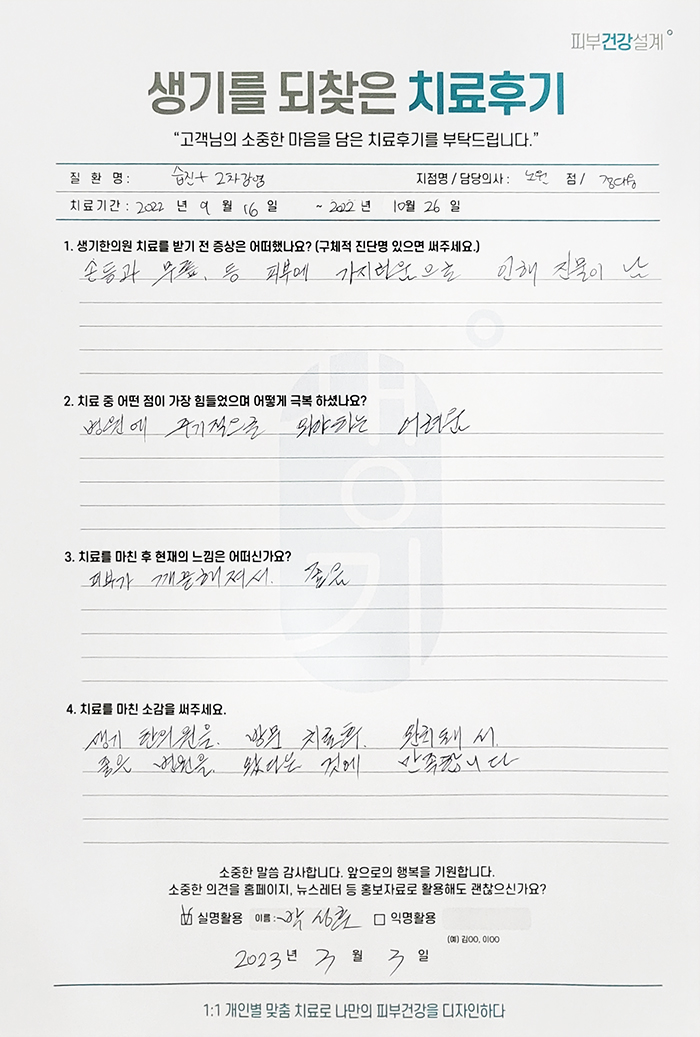 피부건강설계
생기를 되찾은 치료후기
“고객님의 소중한 마음을 담은 치료후기를 부탁드립니다.”
질 환 명 : 습진+ 2차감염 지점명 / 담당의사 : 노원 점 /
치료기간 : 2022 년 9 월 16 일 ~ 2022 년 10월 26 일
1. 생기한의원 치료를 받기 전 증상은 어떠했나요? (구체적 진단명 있으면 써주세요.)
손등과 무릎, 등 피부에 가지러움으로 인해 진물이 남
2. 치료 중 어떤 점이 가장 힘들었으며 어떻게 극복 하셨나요?
병원에 주기적으로 와야하는 어려움
3. 치료를 마친 후 현재의 느낌은 어떠신가요?
피부가 깨끗해져서. 좋음
4. 치료를 마친 소감을 써주세요.
생기 한의원을. 방문 치료후. 완치돼서.
좋은 병원을. 왔다는 것에 만족합니다
생기
소중한 말씀 감사합니다. 앞으로의 행복을 기원합니다.
소중한 의견을 홈페이지, 뉴스레터 등 홍보자료로 활용해도 괜찮으신가요?
실명활용 이름 : 익명활용
(예) 김OO, 이OO
2023 년 3 월 3 일
1:1 개인별 맞춤 치료로 나만의 피부건강을 디자인하다